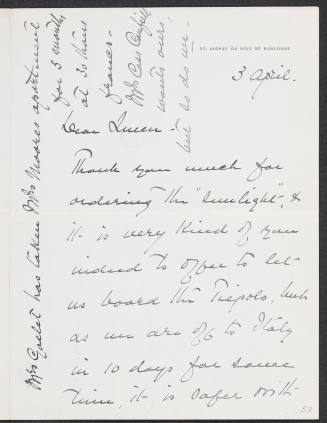 50, AVENUE DU BOIS DE BOULOGNE
3 April.
Dear Queen -
Thank you much for
ordering the "Sunlight", &
it is very kind of you
indeed to offer to let
us board the Tiepolo, but
as we are off to Italy
in 10 days for some
time, it is safer with
Mrs Goelet has taken Mrs Moores apartment
for 3 months
at 30 thous
francs -
Mrs Cass Canfield
wants ours,
but as do un-
59